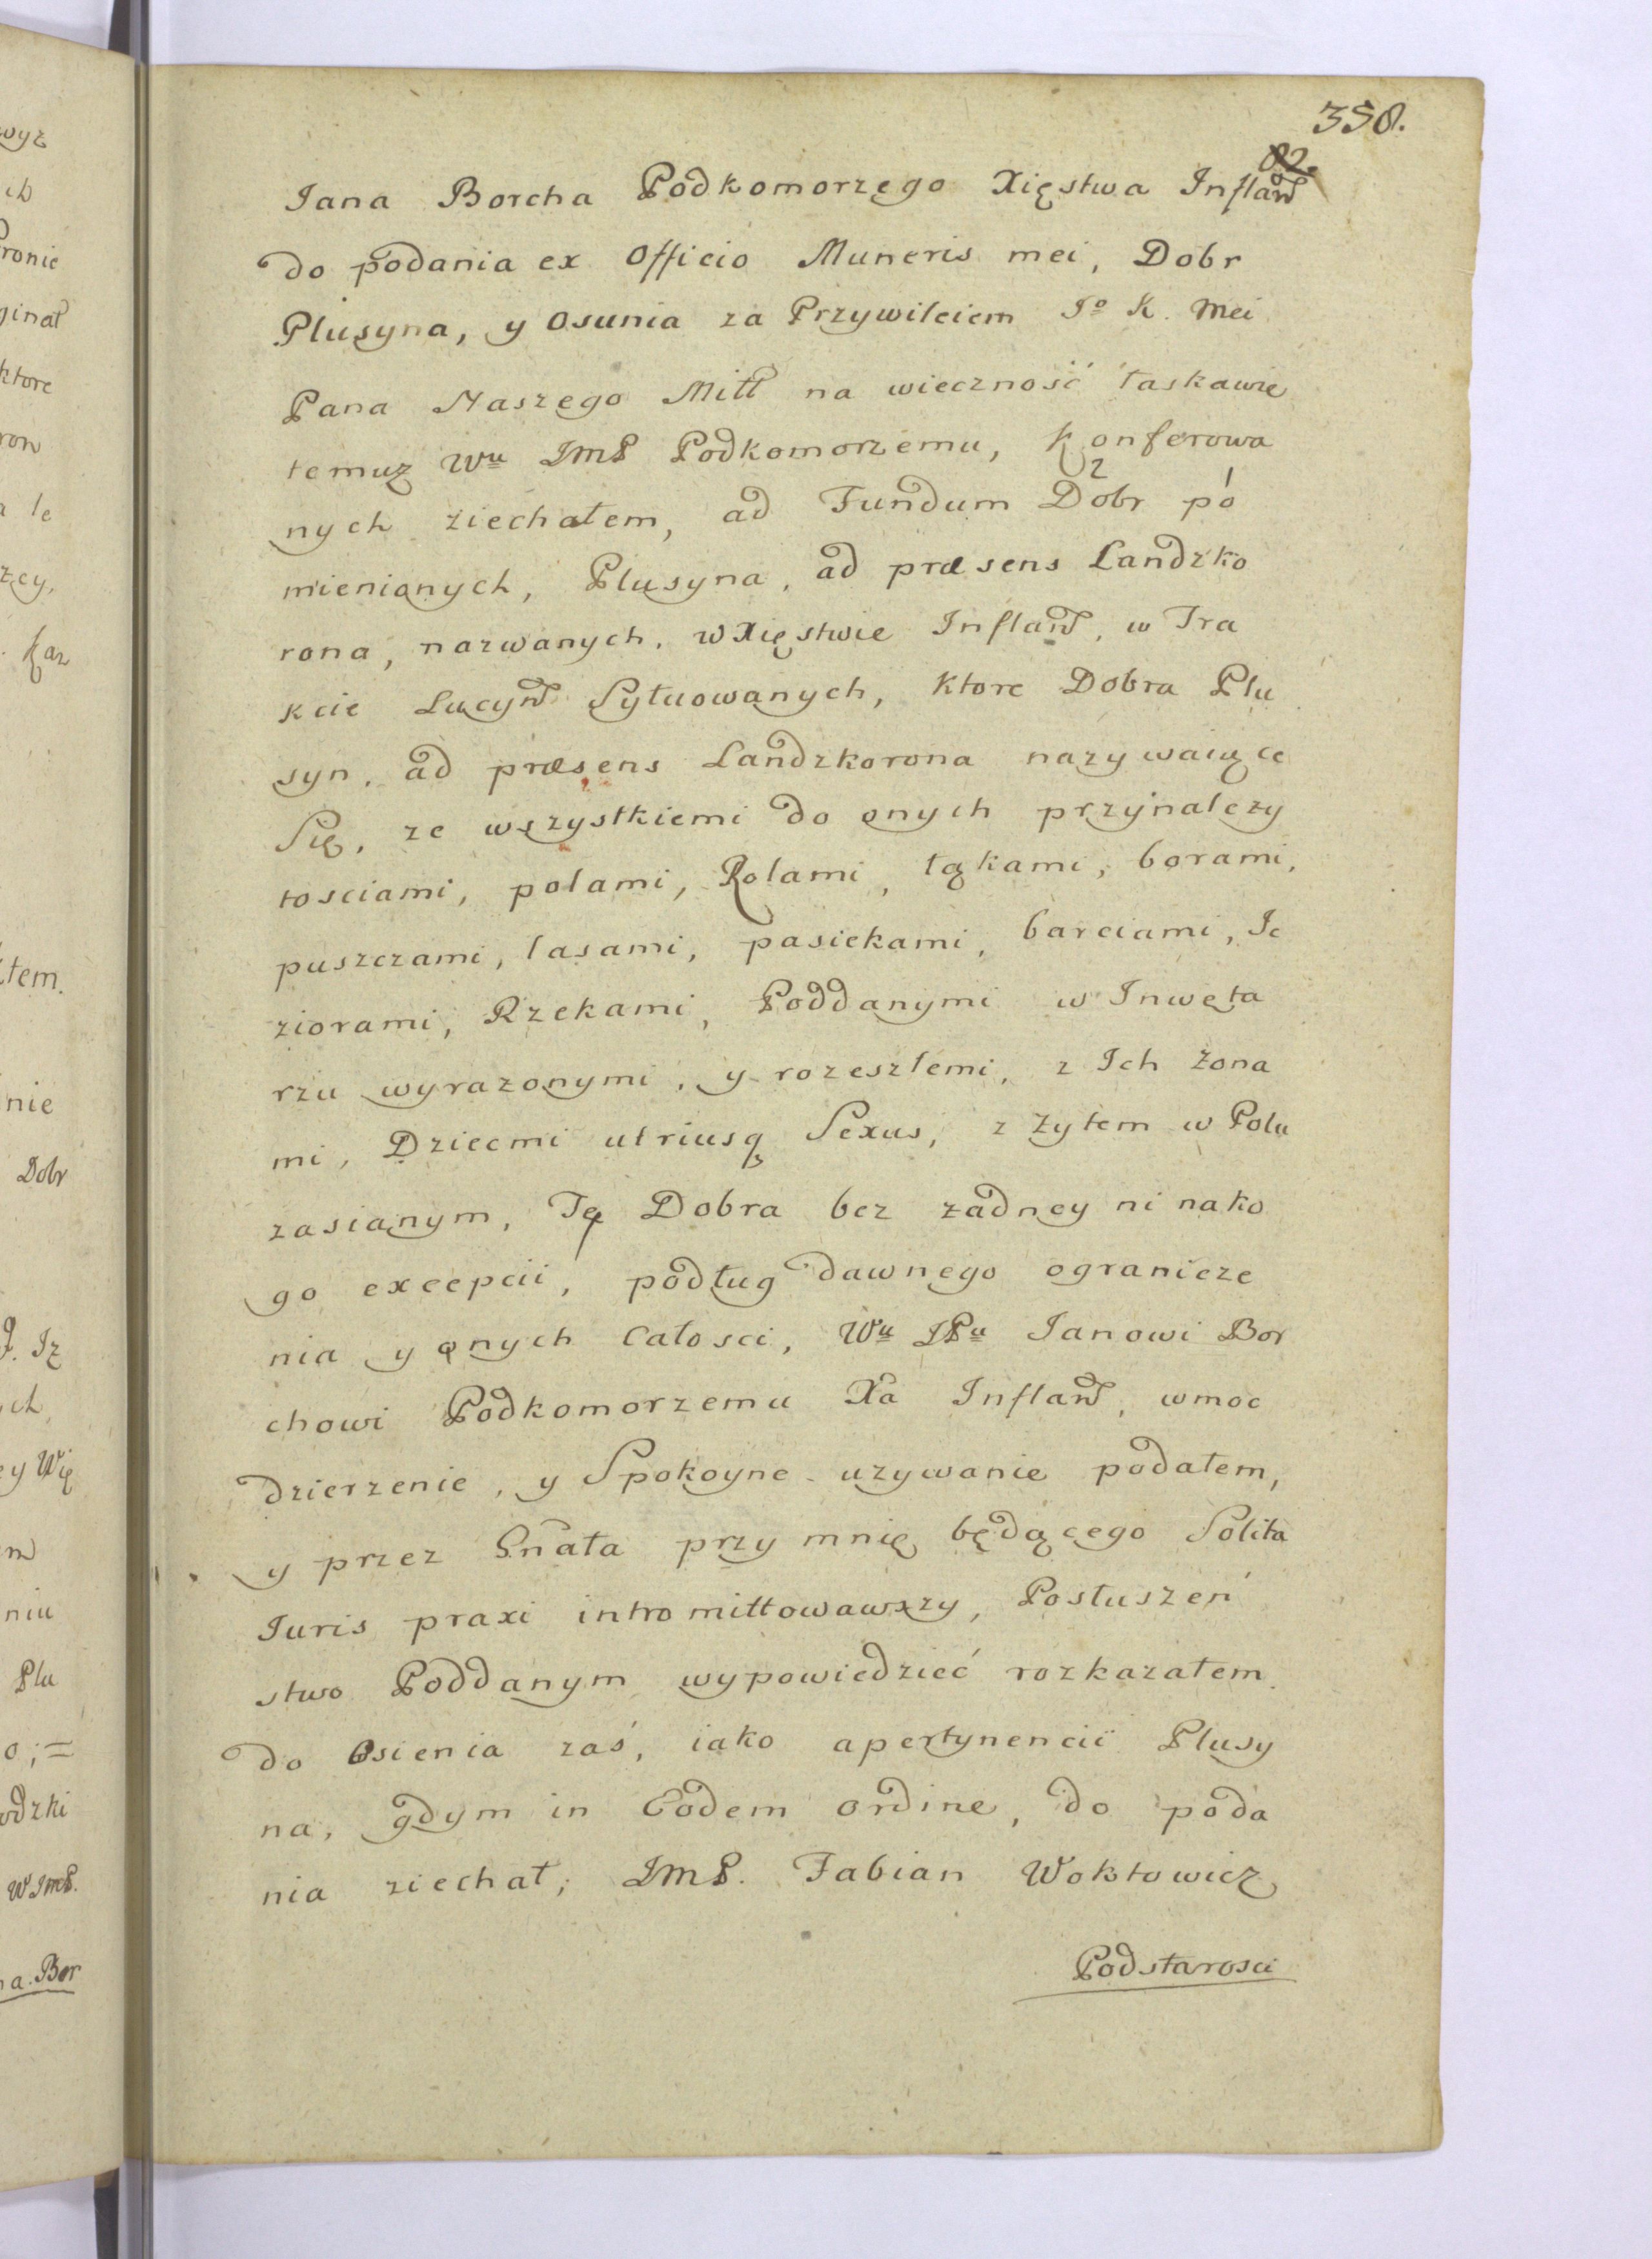 358.
82.
Jana Borcha Podkomorzego Xięstwa Inflaw
do podania ex Officio Muneris mei, Dobr
Plusyna, y Osunia za Przywileiem Jo K. Mei
Pana Naszego Mitt na wieczność łaskawie
temuz Wu JmP Podkomorzemu, Konferowa
nych ziechałem, ad Fundum Dobr po
mienionych, Plusyna, ad præsens Landzko
rona, nazwanych, w Xięstwie Inflaw, w Tra
kcie Lucyn Sytuowanych, ktore Dobra Plu
syn, ad præsens Landzkorona nazywaiące
Się, ze wszystkiemi do onych przynalezy
tosciami, polami, Rolami, łąkami, borami,
puszczami, lasami, pasiekami, barciami, Je
ziorami, Rzekami, Poddanymi w Inweta
rzu wyrazonymi, y rozeszłemi, z Ich żona
mi, Dziecmi utriusq Sexus, z żytem w Polu
zasianym, Te Dobra bez żadney ni nako
go excepcii, podług dawnego ogranicze
nia y onych Całosci, Wu JPu Janowi Bor
chowi Podkomorzemu Xa Inflaw, w moc
dzierzenie, y Spokoyne uzywanie podałem,
y przez Gnała przy mnie będącego Solita
Juris praxi intromittowawszy, Posłuszeń
stwo Poddanym wypowiedzieć rozkazałem.
do Osienia zaś, iako apertynencii Plusy
na, gdym in Eodem ordine, do poda
nia ziechał; JmP. Fabian Woktowicz
Podstarosci
wyz
ch
ronie
ginał
ktore
ron
a le
zcy,
kaz
łem.
nie
Dobr
Iz
ch
ey Wię
m
niu
Plu
o;=
odzki
W JmP.
na. Bor